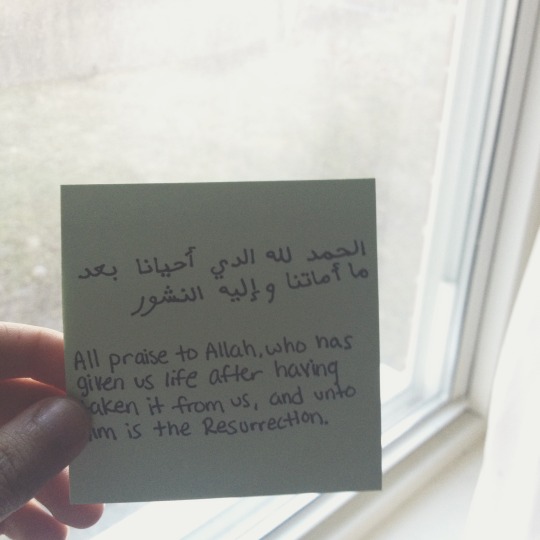 الحمد لله الدي أحيانا بعد
ما أماتنا وإليه النشور
All praise to Allah, who has
given us life after having
taken it from us, and unto
him is the Resurrection.